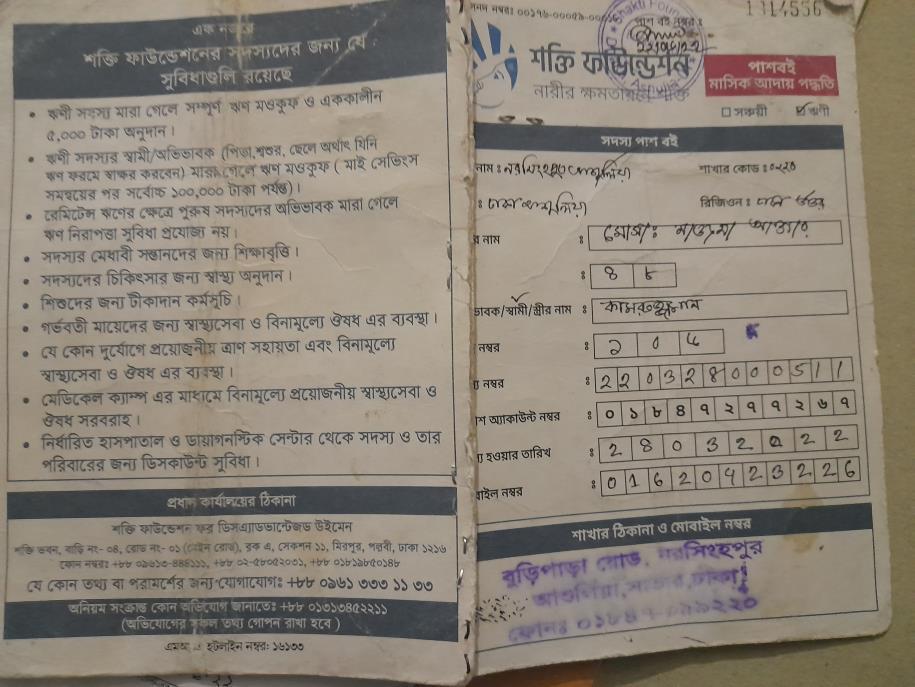 এক নজরে
শক্তি ফাউন্ডেশনের সদস্যদের জন্য যে
সুবিধাগুলি রয়েছে
• ঋণী সদস্য মারা গেলে সম্পূর্ণ ঋণ মওকুফ ও এককালীন
৫,০০০ টাকা অনুদান।
• ঋণী সদস্যর স্বামী/অভিভাবক (পিতা,শ্বশুর, ছেলে অর্থাৎ যিনি
ঋণ ফরমে স্বাক্ষর করবেন) মারা গেলে ঋণ মওকুফ ( মাই সেভিংস
সমন্বয়ের পর সর্বোচ্চ ১০০,০০০ টাকা পর্যন্ত)।
• রেমিটেন্স ঋণের ক্ষেত্রে পুরুষ সদস্যদের অভিভাবক মারা গেলে
ঋণ নিরাপত্তা সুবিধা প্রযোজ্য নয়।
• সদস্যর মেধাবী সন্তানদের জন্য শিক্ষাবৃত্তি।
• সদস্যদের চিকিৎসার জন্য স্বাস্থ্য অনুদান।
• শিশুদের জন্য টীকাদান কর্মসূচি।
• গর্ভবতী মায়েদের জন্য স্বাস্থ্যসেবা ও বিনামূল্যে ঔষধ এর ব্যবস্থা।
• যে কোন দুর্যোগে প্রয়োজনীয় ত্রাণ সহায়তা এবং বিনামূল্যে
স্বাস্থ্যসেবা ও ঔষধ এর ব্যবস্থা।
• মেডিকেল ক্যাম্প এর মাধ্যমে বিনামূল্যে প্রয়োজনীয় স্বাস্থ্যসেবা ও
ঔষধ সরবরাহ।
• নির্ধারিত হাসপাতাল ও ডায়াগনস্টিক সেন্টার থেকে সদস্য ও তার
পরিবারের জন্য ডিসকাউন্ট সুবিধা।
প্রধান কার্যালয়ের ঠিকানা
শক্তি ফাউন্ডেশন ফর ডিসএ্যাডভান্টেজড উইমেন
শক্তি ভবন, বাড়ি নং- ০৪, রোড নং- ০১ (মেইন রোড), ব্লক এ, সেকশন ১১, মিরপুর, পল্লবী, ঢাকা ১২১৬
যে কোন তথ্য বা পরামর্শের জন্য যোগাযোগঃ +৮৮ ০৯৬১ ৩৩৩ ১১ ৩৩
অনিয়ম সংক্রান্ত কোন অভিযোগ জানাতেঃ +৮৮ ০১৩১৩৪৫২২১১
(অভিযোগের সকল তথ্য গোপন রাখা হবে)
হটলাইন নম্বর: ১৬১৩৩
1314556
পাশ বই নম্বর :
শক্তি ফাউন্ডেশন
নারীর ক্ষমতায়নে শক্তি
পাশবই
মাসিক আদায় পদ্ধতি
সঞ্চয়ী ঋণী
সদস্য পাশ বই
নাম: নরসিংহপুর আশুলিয়া শাখার কোড: ০২২০
: ঢাকা আশুলিয়া রিজিওন: ঢাকা উত্তর
নাম : মোসাঃ আক্তার
: ৪ ৮
ভাবক/স্বামী/স্ত্রীর নাম : কামরুজ্জামান
নম্বর : ১ ০ ৫
নম্বর : 2 2 0 3 2 8 0 0 0 5 1 1
শ অ্যাকাউন্ট নম্বর : ০ ১ ৮ ৪ ৭ ২ ৭ ৭ ২ ৬ ৭
হওয়ার তারিখ : 2 8 0 3 2 0 2 2
বাইল নম্বর : 0 1 6 2 0 4 2 3 2 2 6
শাখার ঠিকানা ও মোবাইল নম্বর
বুড়িপাড়া রোড, নরসিংহপুর
আশুলিয়া, সাভার, ঢাকা
ফোনঃ